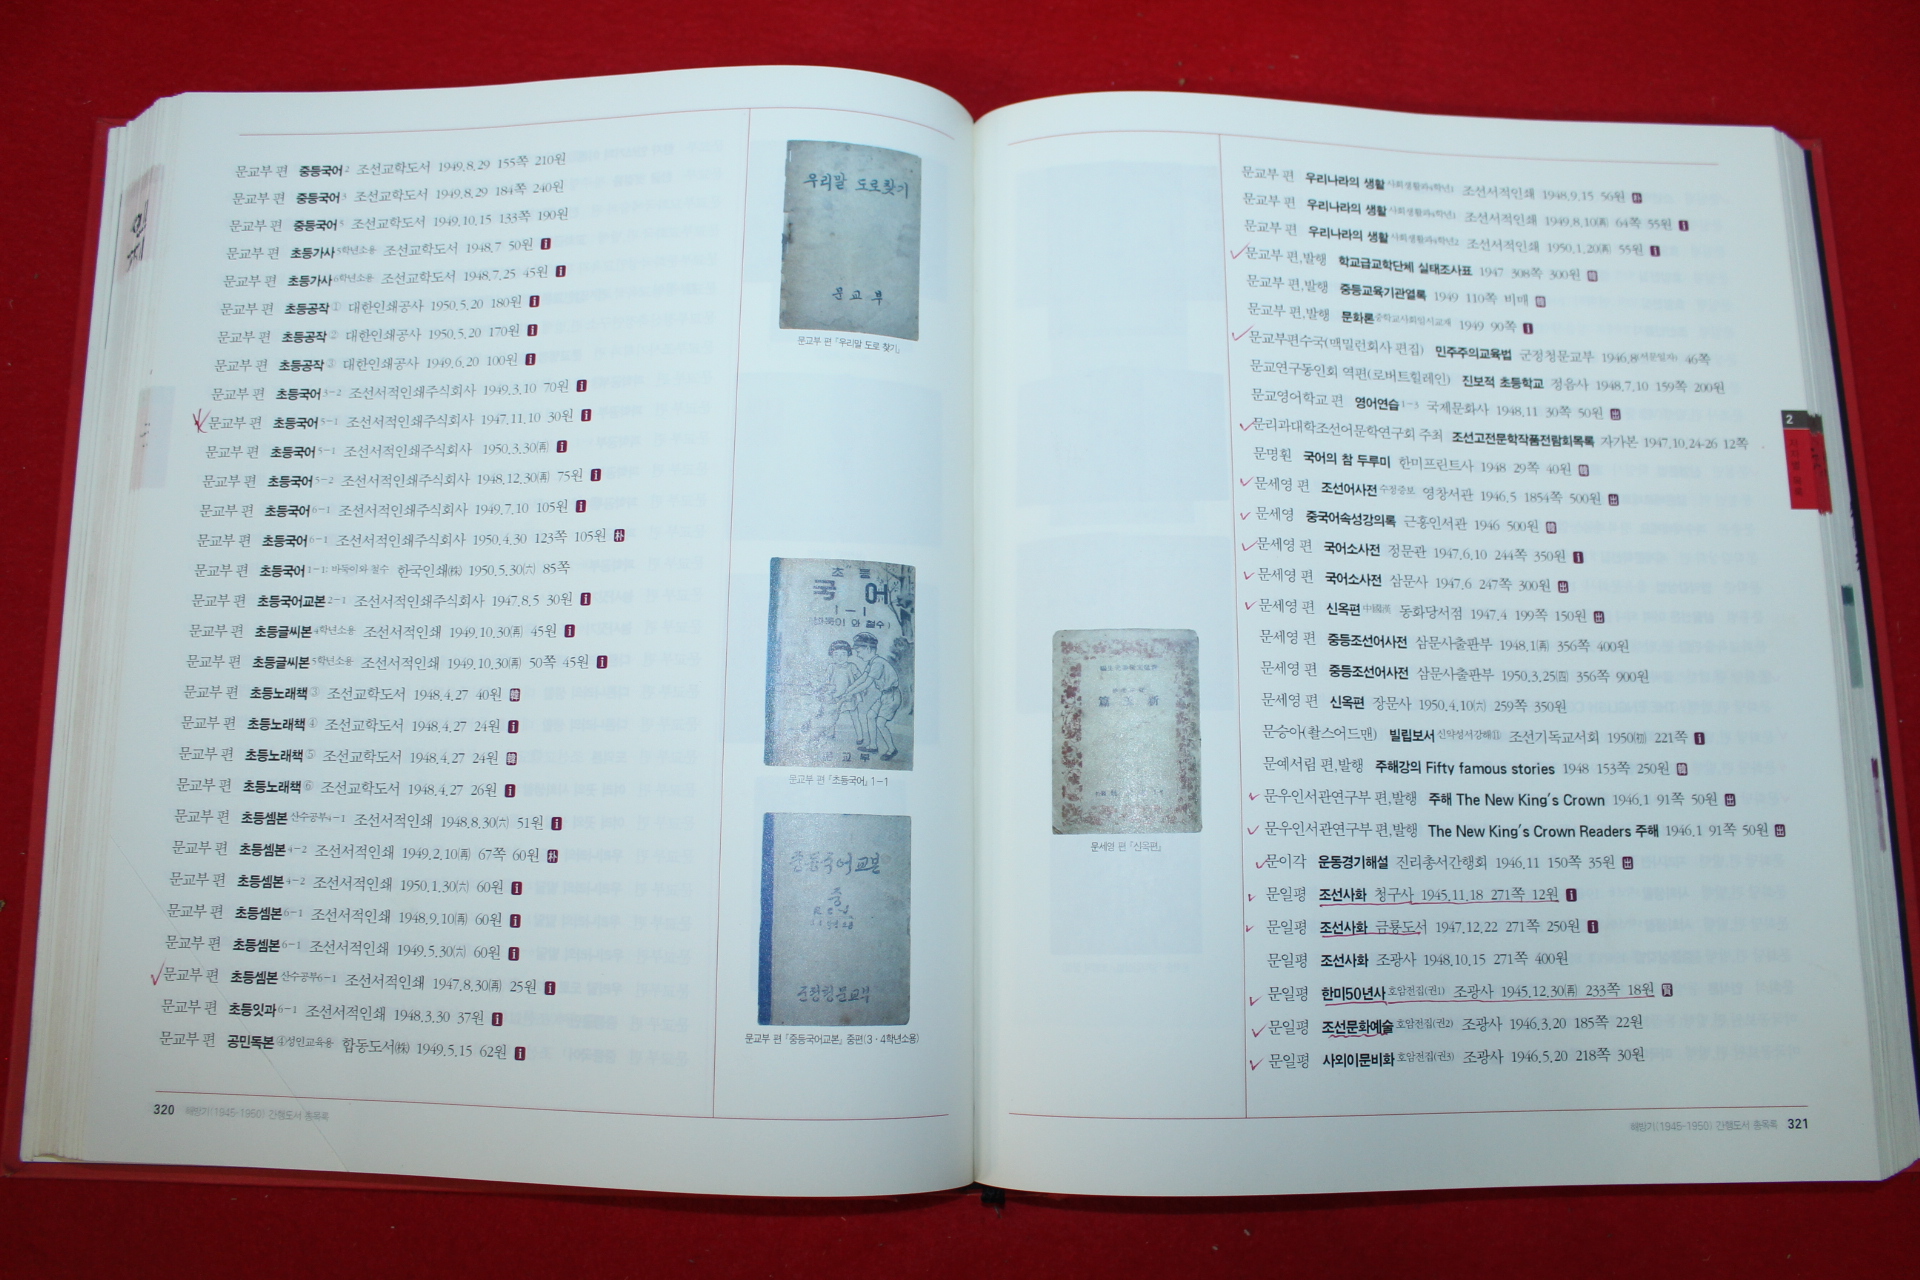 문교부 편 중등국어2 조선교학도서 1949.8.29 155쪽 210원
문교부 편 중등국어3 조선교학도서 1949.8.29 184쪽 240원
문교부 편 중등국어5 조선교학도서 1949.10.15 133쪽 190원
문교부 편 초등가사 5학년소용 조선교학도서 1948.7 50원 i
문교부 편 초등가사 6학년소용 조선교학도서 1948.7.25 45원 i
문교부 편 초등공작① 대한인쇄공사 1950.5.20 180원 i
문교부 편 초등공작② 대한인쇄공사 1950.5.20 170원 i
문교부 편 초등공작③ 대한인쇄공사 1949.6.20 100원 i
문교부 편 초등국어3-2 조선서적인쇄주식회사 1949.3.10 70원 i
문교부 편 초등국어5-1 조선서적인쇄주식회사 1947.11.10 30원 i
문교부 편 초등국어5-1 조선서적인쇄주식회사 1950.3.30(再) i
문교부 편 초등국어5-2 조선서적인쇄주식회사 1948.12.30(再) 75원 i
문교부 편 초등국어6-1 조선서적인쇄주식회사 1949.7.10 105원 i
문교부 편 초등국어6-1 조선서적인쇄주식회사 1950.4.30 123쪽 105원 朴
문교부 편 초등국어1-1: 바둑이와 철수 한국인쇄(株) 1950.5.30(六) 85쪽
문교부 편 초등국어교본2-1 조선서적인쇄주식회사 1947.8.5 30원 i
문교부 편 초등글씨본4학년소용 조선서적인쇄 1949.10.30(再) 45원 i
문교부 편 초등글씨본5학년소용 조선서적인쇄 1949.10.30(再) 50쪽 45원 i
문교부 편 초등노래책③ 조선교학도서 1948.4.27 40원 韓
문교부 편 초등노래책④ 조선교학도서 1948.4.27 24원 i
문교부 편 초등노래책⑤ 조선교학도서 1948.4.27 24원 韓
문교부 편 초등노래책⑥ 조선교학도서 1948.4.27 26원 i
문교부 편 초등셈본 산수공부4-1 조선서적인쇄 1948.8.30(六) 51원 i
문교부 편 초등셈본4-2 조선서적인쇄 1949.2.10(再) 67쪽 60원 朴
문교부 편 초등셈본4-2 조선서적인쇄 1950.1.30(六) 60원 i
문교부 편 초등셈본6-1 조선서적인쇄 1948.9.10(再) 60원 i
문교부 편 초등셈본6-1 조선서적인쇄 1949.5.30(六) 60원 i
문교부 편 초등셈본 산수공부6-1 조선서적인쇄 1947.8.30(再) 25원 i
문교부 편 초등잇과6-1 조선서적인쇄 1948.3.30 37원 i
문교부 편 공민독본④성인교육용 합동도서(株) 1949.5.15 62원 i
320 해방기(1945-1950) 간행도서 총목록
우리말 도로찾기
문교부
문교부 편 「우리말 도로 찾기」
초등
국어
1-1
(바둑이와 철수)
문교부
문교부 편 「초등국어」 1-1
중등국어교본
중
군정청문교부
문교부 편 「중등국어교본」 중편(3·4학년소용)
문세영 편 「신옥편」
문교부 편 우리나라의 생활 사회생활과4학년1 조선서적인쇄 1948.9.15 56원 朴
문교부 편 우리나라의 생활 사회생활과4학년1 조선서적인쇄 1949.8.10(再) 64쪽 55원 i
문교부 편 우리나라의 생활 사회생활과4학년2 조선서적인쇄 1950.1.20(再) 55원 i
문교부 편,발행 학교급교학단체 실태조사표 1947 308쪽 300원 韓
문교부 편,발행 중등교육기관열록 1949 110쪽 비매 韓
문교부 편,발행 문화론 중학교사회임시교재 1949 90쪽 i
문교부편수국(맥밀런회사 편집) 민주주의교육법 군정청문교부 1946.8(서문일자) 46쪽
문교연구동인회 역편(로버트힐레인) 진보적 초등학교 정음사 1948.7.10 159쪽 200원
문교영어학교 편 영어연습1-3 국제문화사 1948.11 30쪽 50원 出
문리과대학조선어문학연구회 주최 조선고전문학작품전람회목록 자가본 1947.10.24-26 12쪽
문명훤 국어의 참 두루미 한미프린트사 1948 29쪽 40원 韓
문세영 편 조선어사전 수정증보 영창서관 1946.5 1854쪽 500원 出
문세영 중국어속성강의록 근흥인서관 1946 500원 韓
문세영 편 국어소사전 정문관 1947.6.10 244쪽 350원 i
문세영 편 국어소사전 삼문사 1947.6 247쪽 300원 出
문세영 편 신옥편 中國漢 동화당서점 1947.4 199쪽 150원 出
문세영 편 중등조선어사전 삼문사출판부 1948.1(再) 356쪽 400원
문세영 편 중등조선어사전 삼문사출판부 1950.3.25(四) 356쪽 900원
문세영 편 신옥편 장문사 1950.4.10(六) 259쪽 350원
문승아(촬스어드맨) 빌립보서 신약성서강해⑪ 조선기독교서회 1950(初) 221쪽 i
문예서림 편,발행 주해강의 Fifty famous stories 1948 153쪽 250원 韓
문우인서관연구부 편,발행 주해 The New King's Crown 1946.1 91쪽 50원 出
문우인서관연구부 편,발행 The New King's Crown Readers 주해 1946.1 91쪽 50원 出
문이각 운동경기해설 진리총서간행회 1946.11 150쪽 35원 出
문일평 조선사화 청구사 1945.11.18 271쪽 12원 i
문일평 조선사화 금룡도서 1947.12.22 271쪽 250원 i
문일평 조선사화 조광사 1948.10.15 271쪽 400원
문일평 한미50년사 호암전집(권1) 조광사 1945.12.30(再) 233쪽 18원 賢
문일평 조선문화예술 호암전집(권2) 조광사 1946.3.20 185쪽 22원
문일평 사외이문비화 호암전집(권3) 조광사 1946.5.20 218쪽 30원
2
해방기(1945-1950) 간행도서 총목록 321